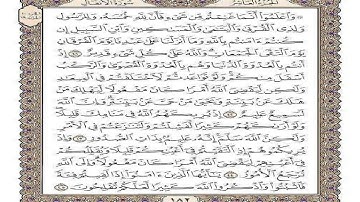 الجزء العاشر سورة الأنفال
وَاعْلَمُوا أَنَّمَا غَنِمْتُم مِّن شَيْءٍ فَأَنَّ لِلَّهِ خُمُسَهُ وَلِلرَّسُولِ
وَلِذِي الْقُرْبَىٰ وَالْيَتَٰمَىٰ وَالْمَسَٰكِينِ وَابْنِ السَّبِيلِ إِن
كُنتُمْ ءَامَنتُم بِاللَّهِ وَمَا أَنزَلْنَا عَلَىٰ عَبْدِنَا يَوْمَ الْفُرْقَانِ
يَوْمَ الْتَقَى الْجَمْعَانِ وَاللَّهُ عَلَىٰ كُلِّ شَيْءٍ قَدِيرٌ ٤١ إِذْ
أَنتُم بِالْعُدْوَةِ الدُّنْيَا وَهُم بِالْعُدْوَةِ الْقُصْوَىٰ وَالرَّكْبُ
أَسْفَلَ مِنكُمْ وَلَوْ تَوَاعَدتُّمْ لَاخْتَلَفْتُمْ فِي الْمِيعَٰدِ
وَلَٰكِن لِّيَقْضِيَ اللَّهُ أَمْرًا كَانَ مَفْعُولًا لِّيَهْلِكَ مَنْ
هَلَكَ عَن بَيِّنَةٍ وَيَحْيَىٰ مَنْ حَيَّ عَن بَيِّنَةٍ وَإِنَّ اللَّهَ
لَسَمِيعٌ عَلِيمٌ ٤٢ إِذْ يُرِيكَهُمُ اللَّهُ فِي مَنَامِكَ قَلِيلًا
وَلَوْ أَرَىٰكَهُمْ كَثِيرًا لَّفَشِلْتُمْ وَلَتَنَٰزَعْتُمْ فِي الْأَمْرِ
وَلَٰكِنَّ اللَّهَ سَلَّمَ إِنَّهُ عَلِيمٌ بِذَاتِ الصُّدُورِ ٤٣ وَإِذْ
يُرِيكُمُوهُمْ إِذِ الْتَقَيْتُمْ فِي أَعْيُنِكُمْ قَلِيلًا وَيُقَلِّلُكُمْ
فِي أَعْيُنِهِمْ لِيَقْضِيَ اللَّهُ أَمْرًا كَانَ مَفْعُولًا وَإِلَى اللَّهِ
تُرْجَعُ الْأُمُورُ ٤٤ يَٰأَيُّهَا الَّذِينَ ءَامَنُوا إِذَا لَقِيتُمْ فِئَةً
فَاثْبُتُوا وَاذْكُرُوا اللَّهَ كَثِيرًا لَّعَلَّكُمْ تُفْلِحُونَ ٤٥
١٨٢